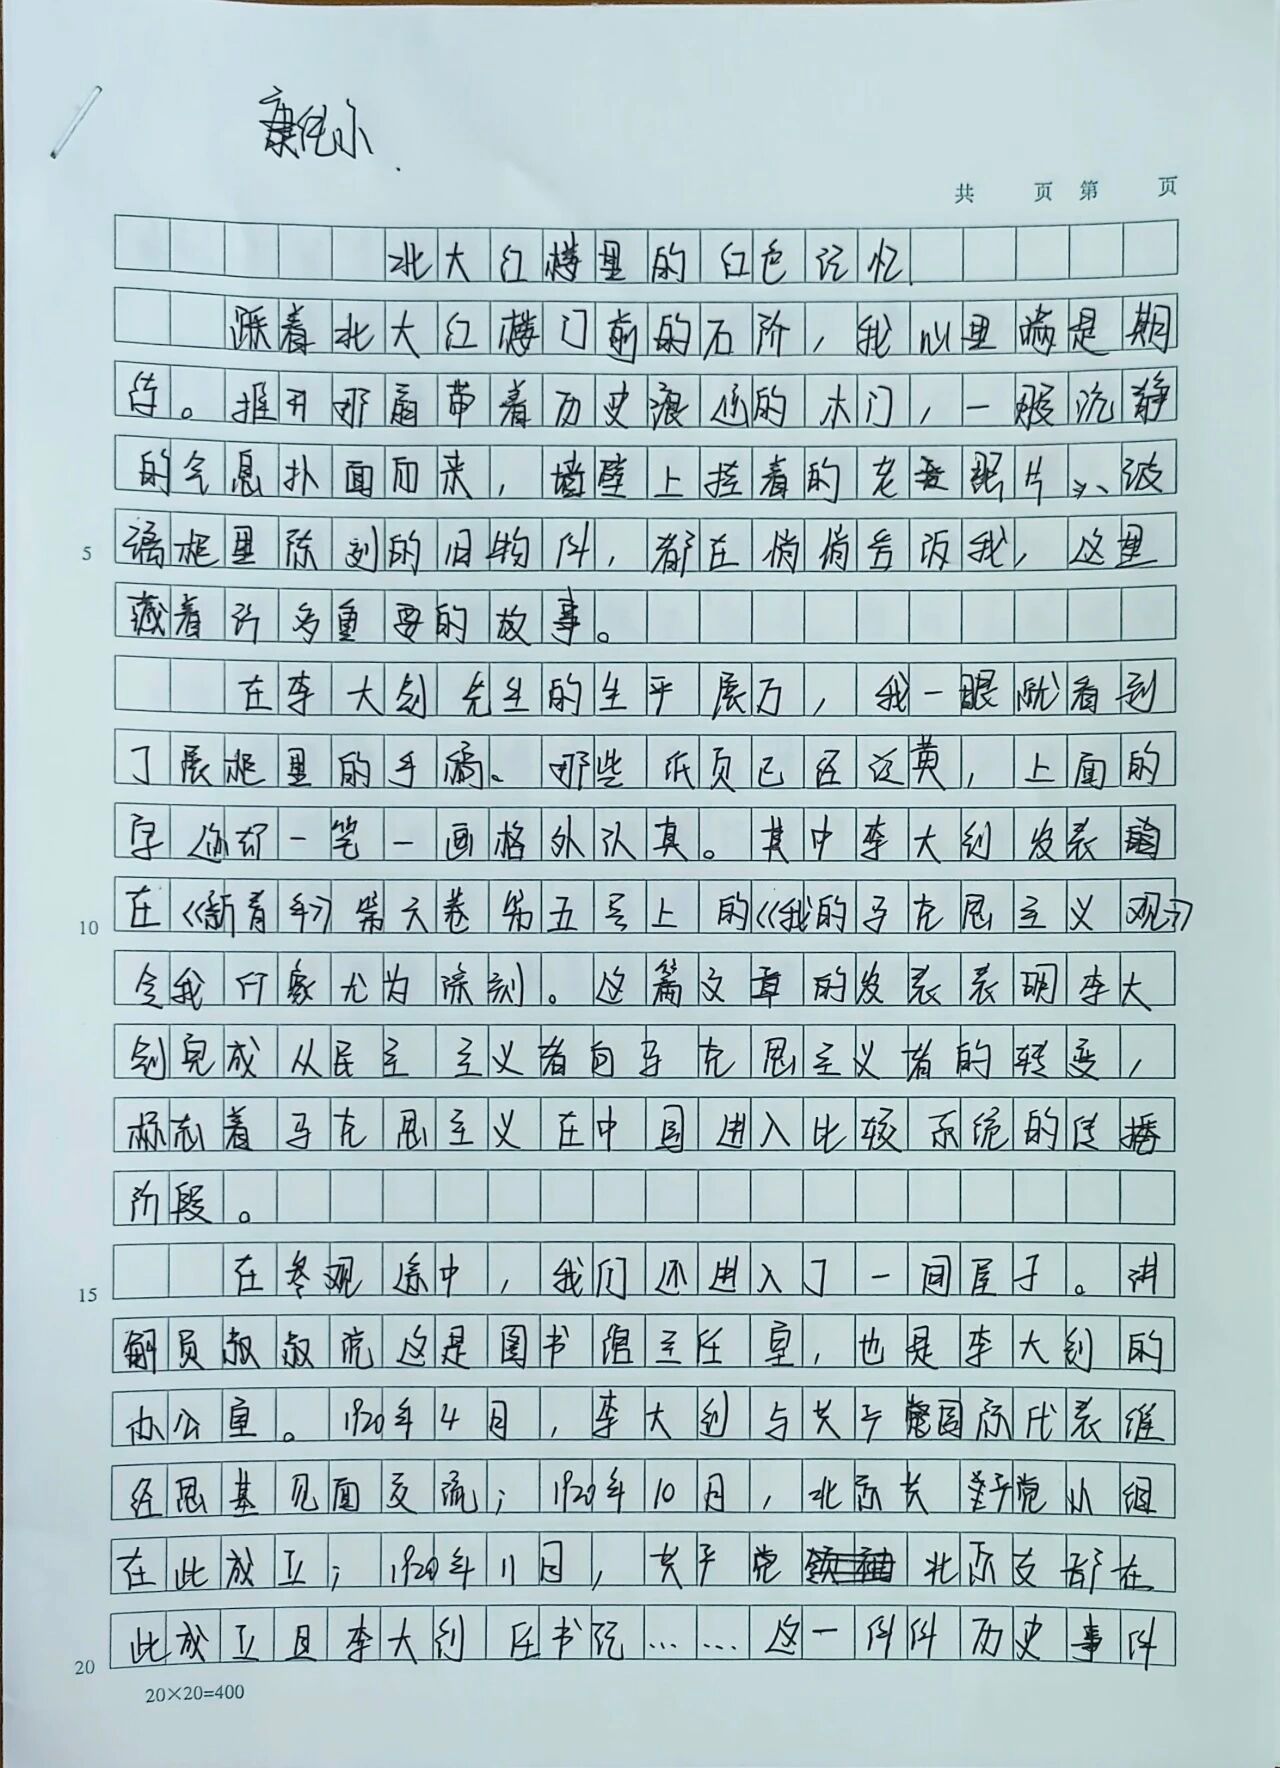 共 页 第 页
北大红楼里的红色记忆
踩着北大红楼门前的石阶，我心里满是期
待。推开那扇带着历史痕迹的木门，一股沉静
的气息扑面而来，墙壁上挂着的老照片、玻
璃柜里陈列的旧物件，都在悄悄告诉我，这里
藏着许多重要的故事。
在李大钊先生的生平展厅，我一眼就看到
了展柜里的手稿。那些纸页已经泛黄，上面的
字迹却一笔一画格外认真。其中李大钊发表
在《新青年》第六卷第五号上的《我的马克思主义观》
令我印象尤为深刻。这篇文章的发表表明李大
钊完成从民主主义者向马克思主义者的转变，
标志着马克思主义在中国进入比较系统的传播
阶段。
在参观途中，我们还进入了一间屋子。讲
解员叔叔说这是图书馆主任室，也是李大钊的
办公室。1920年4月，李大钊与共产国际代表维
经斯基见面交流；1920年10月，北京共产党小组
在此成立；1920年11月，共产党北京支部在
此成立且李大钊任书记……这一件件历史事件
5
10
15
20
20×20=400